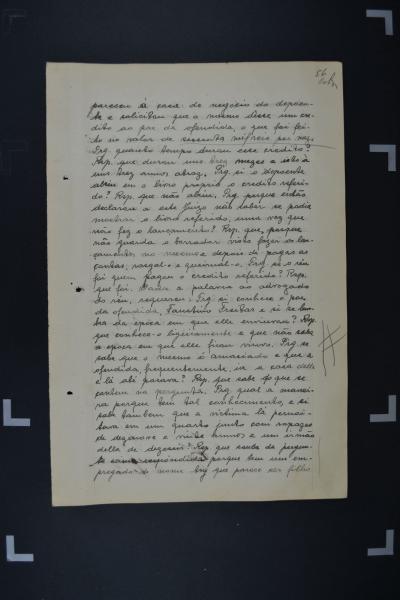 56
pareceu á casa de negocio do depoen-
te e solicitou que o mesmo désse um cre-
dito ao pae da ofendida, o que foi fei-
to no valor de sessenta milreis por mez.
Prg. quanto tempo durou esse credito?
Resp. que durou uns trez mezes e isto á
uns trez annos atraz. Prg. si o depoente
abriu em o livro proprio o credito referi-
do? Resp. que não abriu. Prg. porque então
declarou a este Juizo não saber se podia
mostrar o livro referido, uma vez que
não fez o lançamento? Resp. que, porque
não guarda o borrador visto fazer os lan-
çamentos no mesmo e depois de pagas as
contas, rasgal-o e queimal-o. Prg. si o réu
foi quem pagou o credito referido? Resp.
que foi. Dada a palavra ao advogado
do réu, requereu: Prg. si conhece o pae
da ofendida, Faustino Freitas e si se lem-
bra da época em que elle enviuvou? Resp.
que conhece-o ligeiramente e que não sabe
a época em que elle ficou viuvo. Prg. se
sabe que o mesmo é amasiado e que a
ofendida, frequentemente ia a casa delle
e lá até parava? Resp. que sabe do que se
contem na pergunta. Prg. qual a manei-
ra porque tem tal conhecimento, e si
sabe tambem que a victima lá pernoi-
tava em um quarto junto com rapazes
de dezanove e vinte annos e um irmão
della de dezoito? Resp. que soube da pergun-
ta porque tem um em-
pregado de nome que parece ser filho